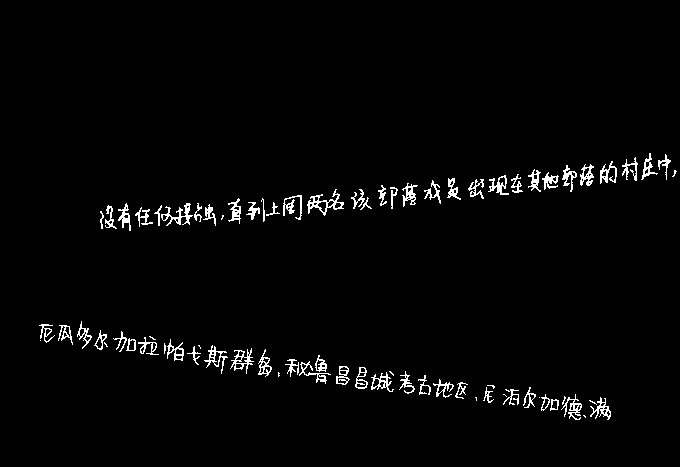 没有任何接触,直到上周两名该部落成员出现在其他部落的村庄中,
厄瓜多尔加拉帕戈斯群岛,秘鲁昌昌城考古地区,尼泊尔加德满